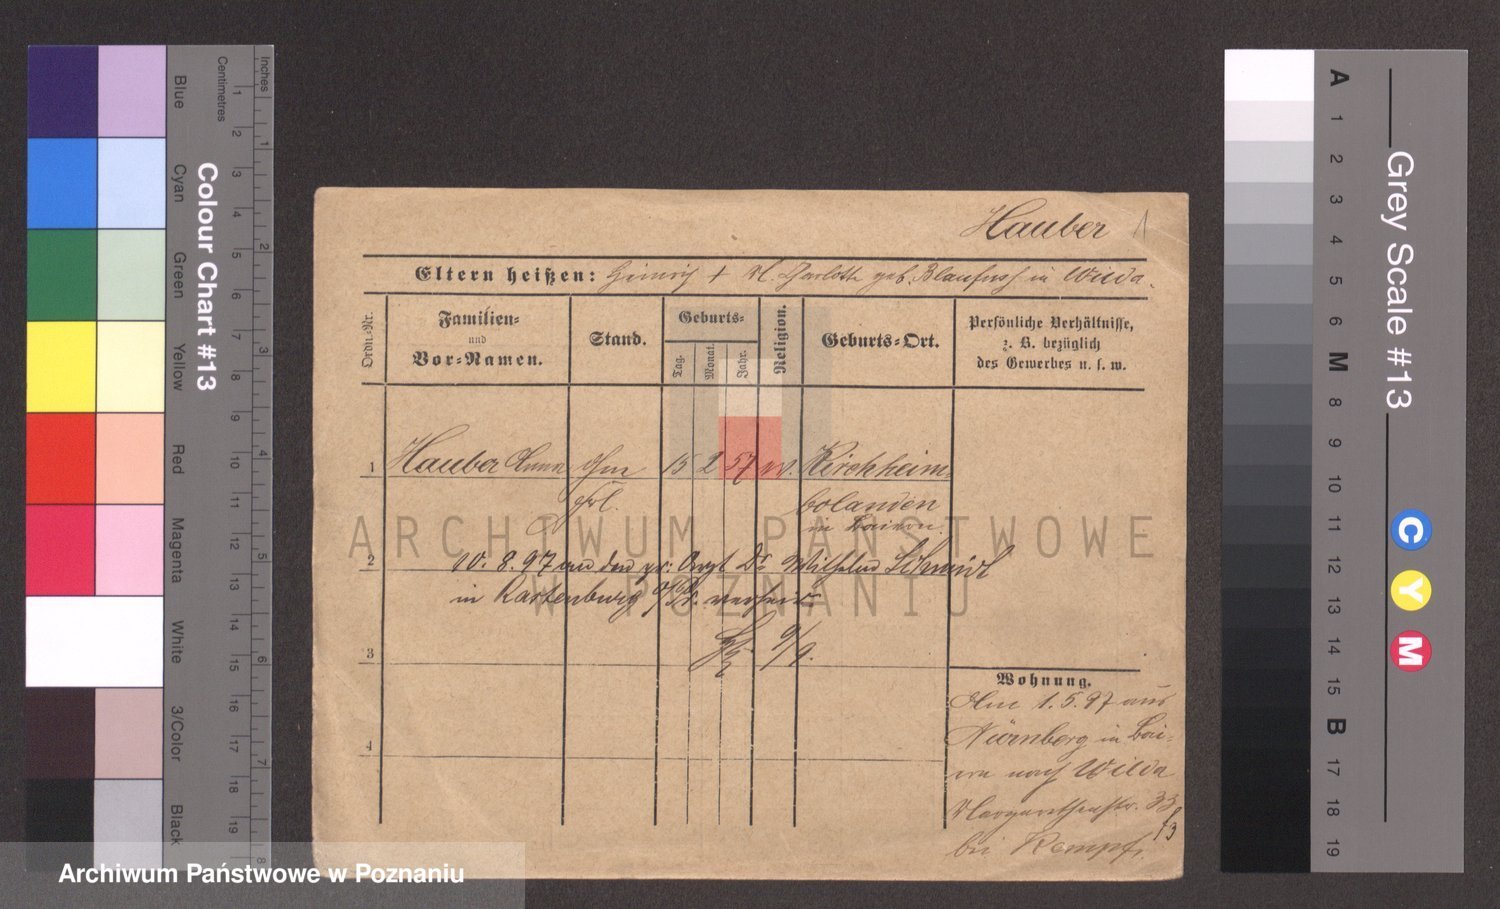 Inches
Centimetres
Colour Chart #13
Blue
Cyan
Green
Yellow
Red
Magenta
White
3/Color
Black
1 2 3 4 5 6 7 8 9 10 11 12 13 14 15 16 17 18 19
1 2 3 4 5 6 7 8
Hauber 1
Eltern heißen: Heinrich + M. Charlotte geb. Blaufuss in Wilda.
Ordn-Nr.
Familien-
und
Vor-Namen.
Stand.
Geburts-
Tag.
Monat.
Jahr.
Religion.
Geburts-Ort.
Persönliche Verhältnisse,
z. B. bezüglich
des Gewerbes u. s. w.
1 Hauber Anna 15 2 57 Kirchheim
Frl. bolanden
in Baiern
2 10. 8. 97 an den pr. Arzt Dr. Wilhelm Schmidt
in Rastenburg verheir.
9/9.
3
4
Wohnung.
Am 1.5.97 aus
Nürnberg in Bai-
ern nach Wilda
Margarethenstr. 33
bei Kempf.
ARCHIWUM PAŃSTWOWE
W POZNANIU
Archiwum Państwowe w Poznaniu
Grey Scale #13
A 1 2 3 4 5 6 M 8 9 10 11 12 13 14 15 B 17 18 19
C
Y
M